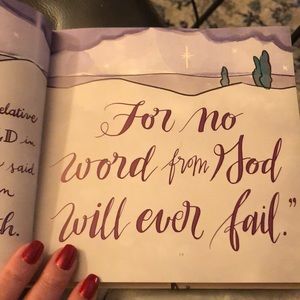 elative
D in
said
m
h.
For no
word from God
will ever fail."